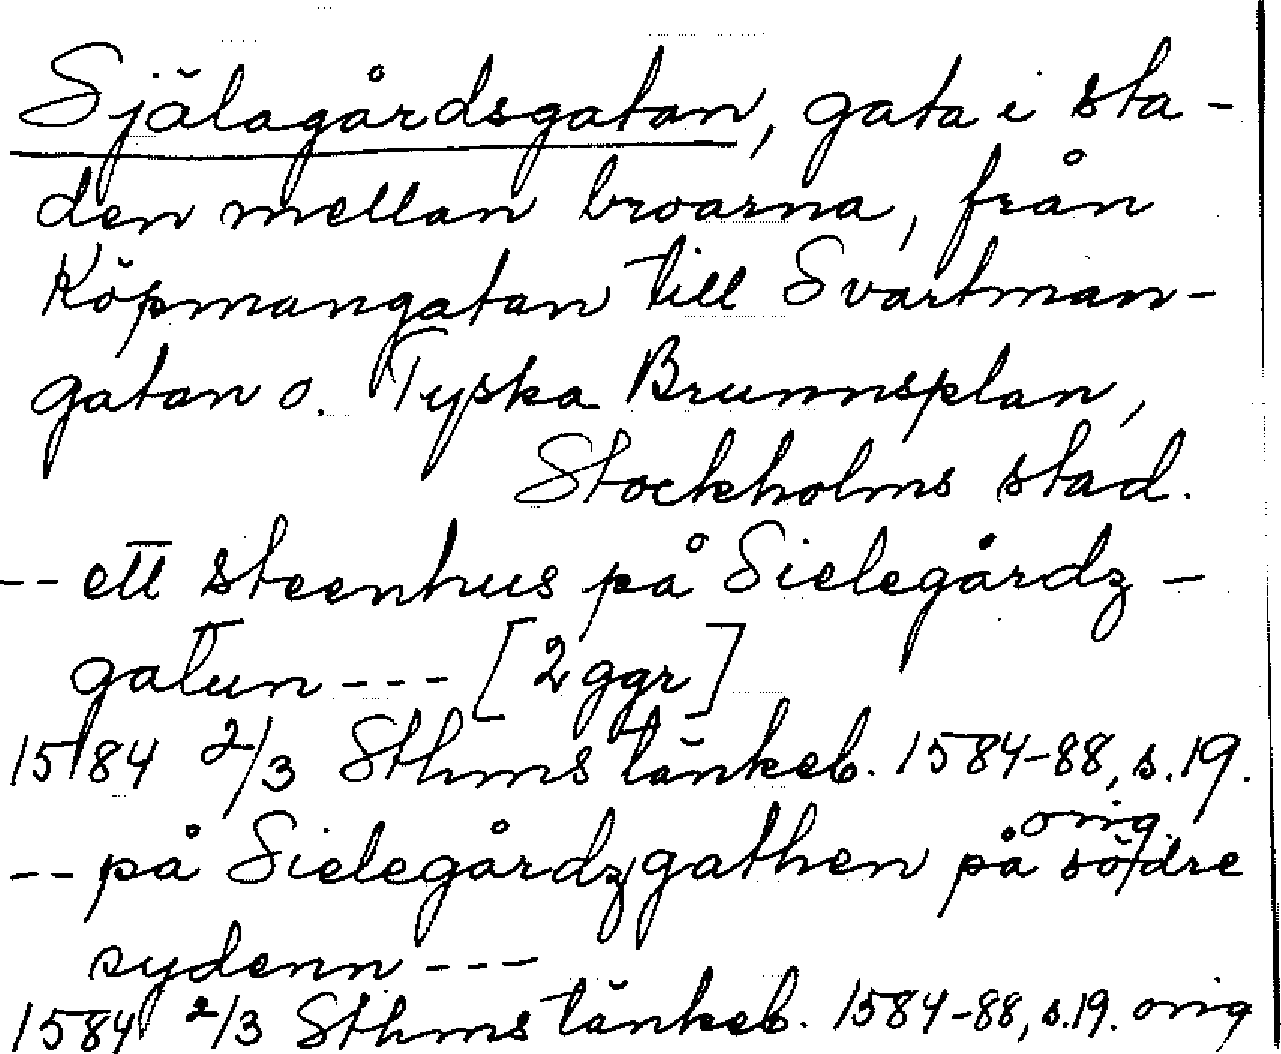 Själagårdsgatan, gata i sta-
den mellan broarna, från
Köpmangatan till Svartman-
gatan o. Tyska Brunnsplan,
Stockholms stad.
-- ett steenhus på Sielegårdz-
gatun --- [2 ggr]
1584 2/3 Sthms tänkeb. 1584-88, s.19.
orig.
-- på Sielegårdzgathen på södre
sydenn ---
1584 2/3 Sthms tänkeb. 1584-88, s.19. orig